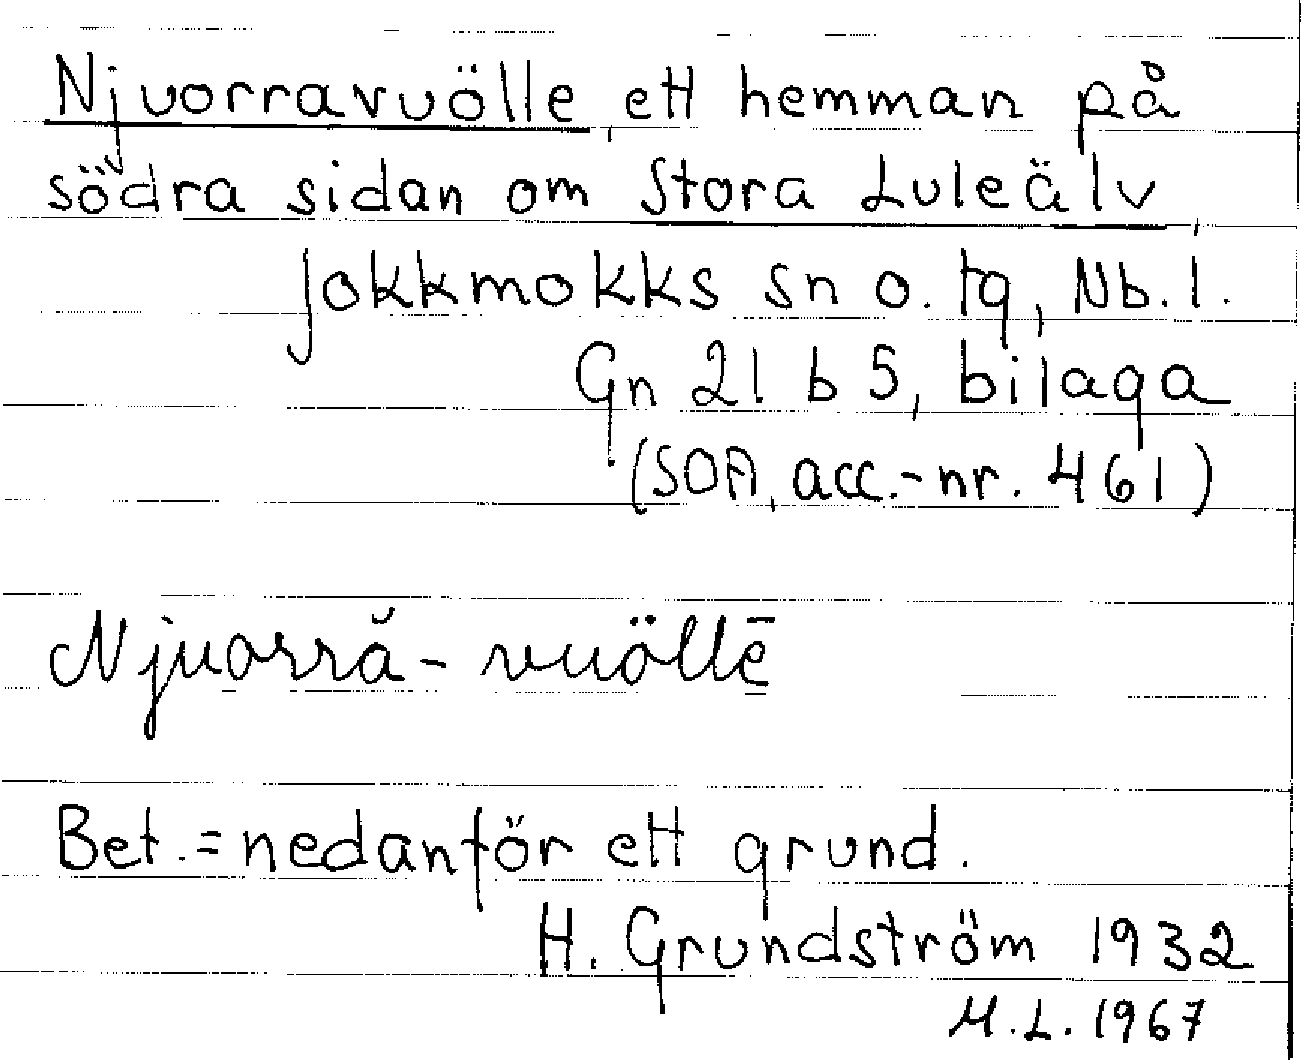 Njuorravuölle, ett hemman på
södra sidan om Stora Luleälv,
Jokkmokks sn o. tg, Nb. l.
Gn 21 b 5, bilaga
(SOA, acc.-nr. 461)
Njuorră-vuöllē
Bet. = nedanför ett grund.
H. Grundström 1932
M.L. 1967